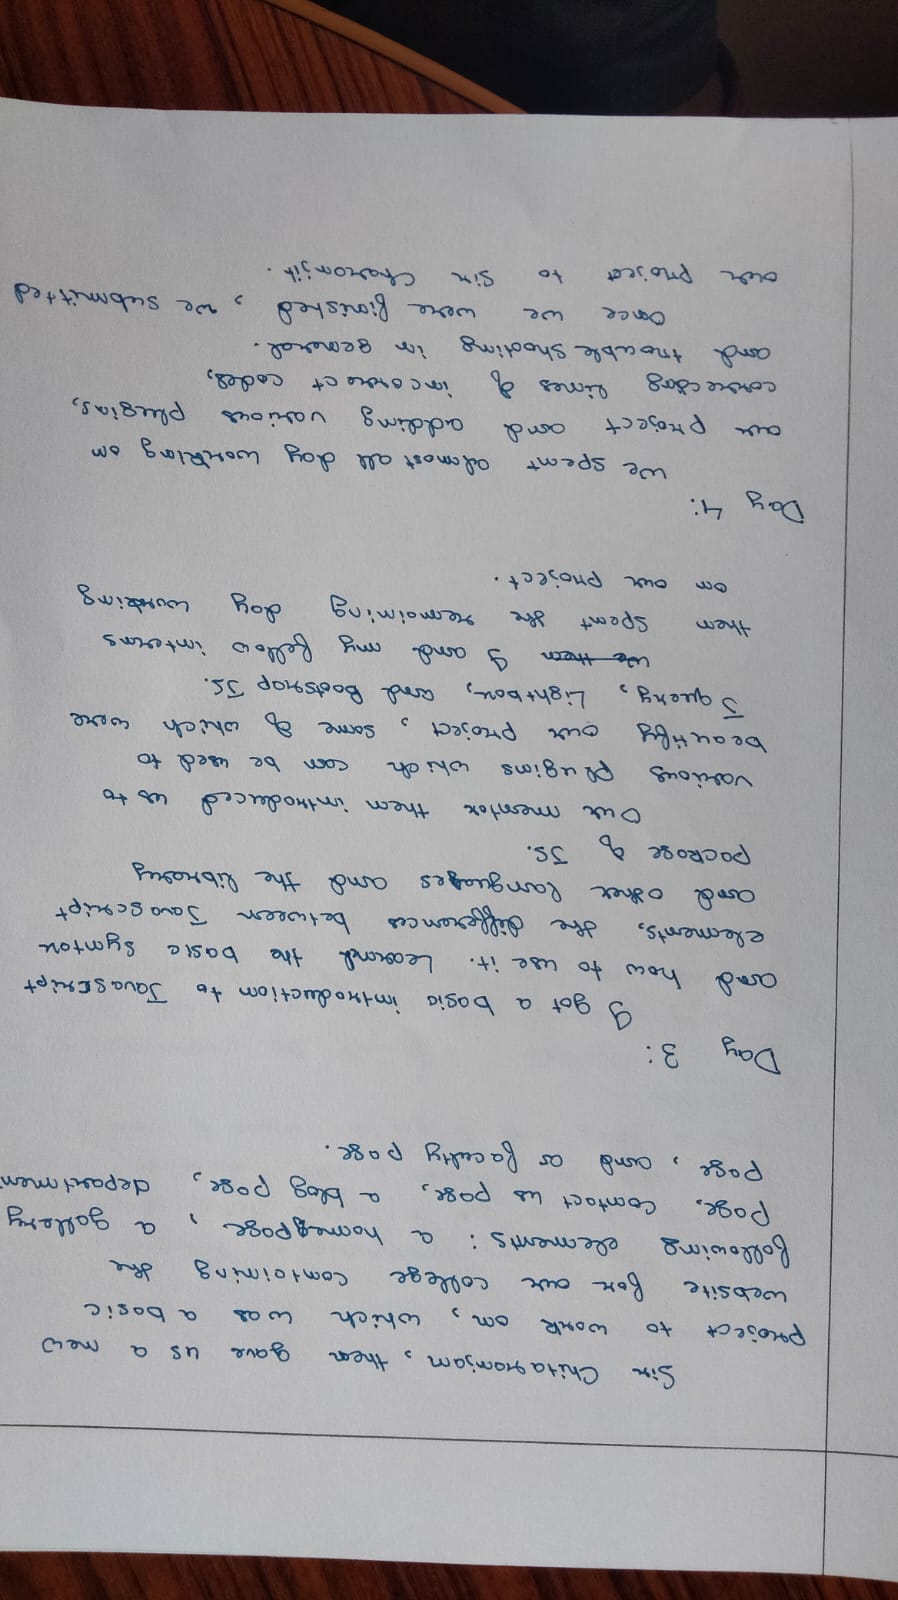 Sir Chitaranjan, then gave us a new
project to work on, which was a basic
website for our college containing the
following elements: a homepage, a gallery
page, contact us page, a blog page, departmen
page, and a faculty page.
Day 3:
I got a basic introduction to Javascript
and how to use it. Learnd the basic syntax
elements, the differences between Javascript
and other languages and the library
package of JS.
Our mentor then introduced us to
various plugins which can be used to
beautify our project, some of which were
Jquery, Lightbox, and Bootsrap JS.
We then I and my fellow interns
then spent the remaining day working
on our project.
Day 4:
We spent almost all day working on
our project and adding various plugins,
correcting lines of incorrect codes,
and troubleshooting in general.
Once we were finished, we submitted
our project to Sir Charanjit.